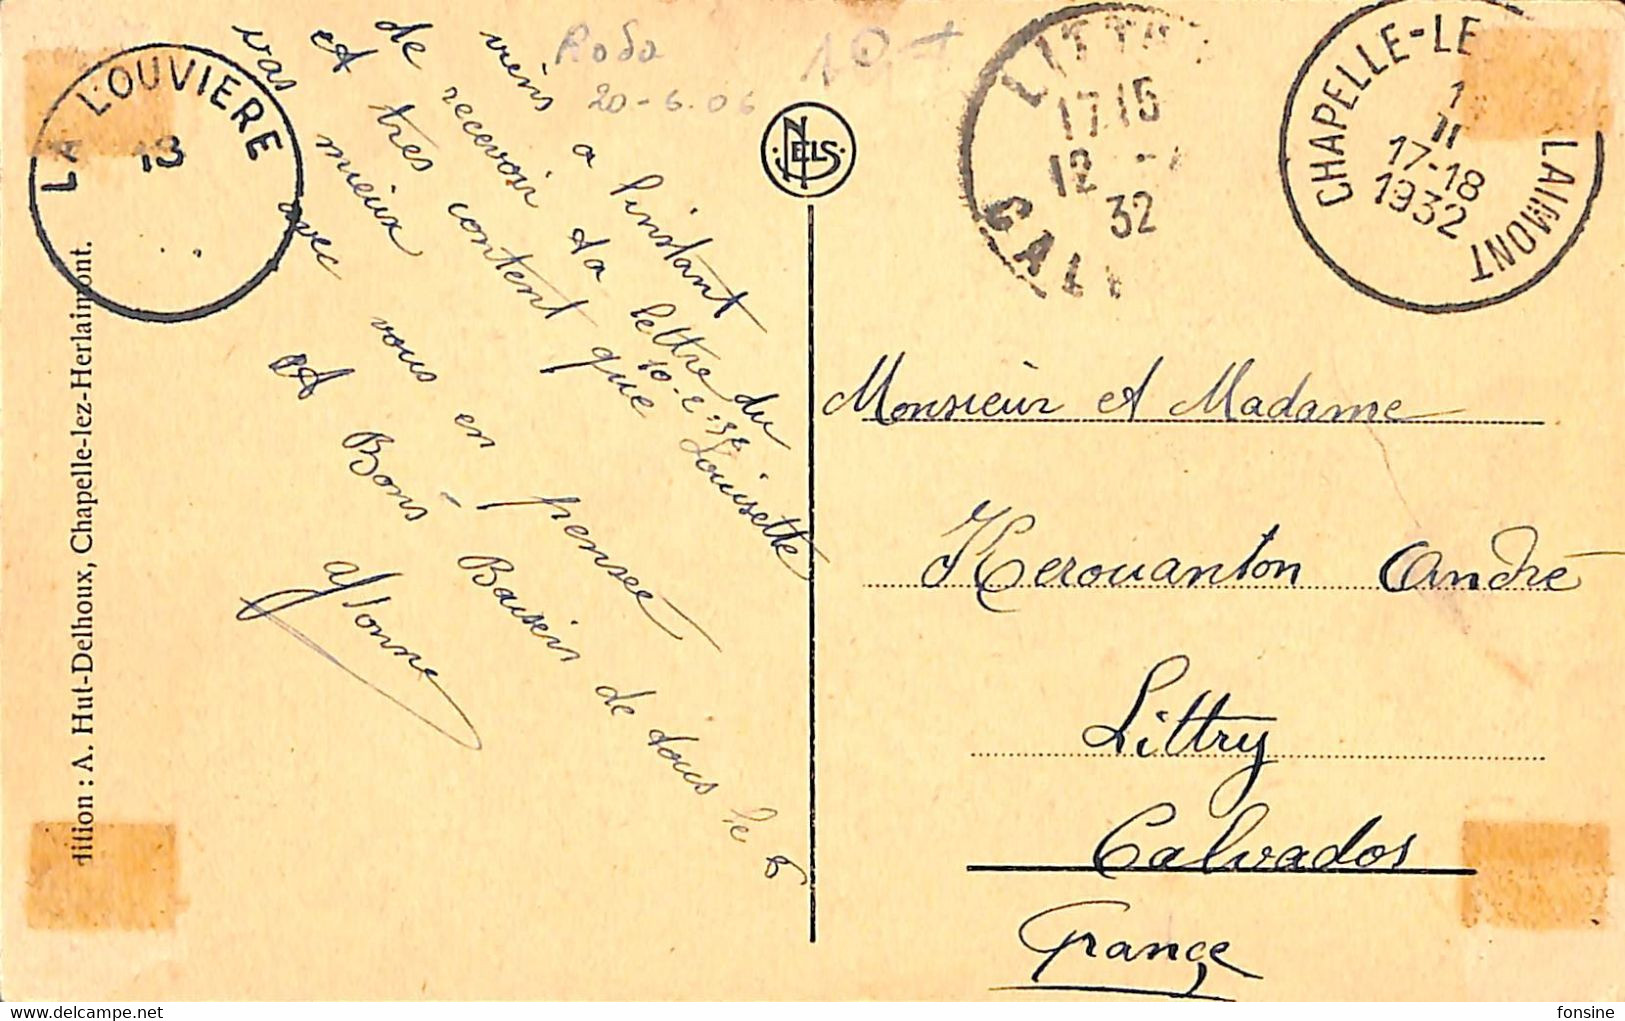 LA LOUVIERE
13
Rodo
20-6.06
NELS
LITT
1715
12
32
CAL
CHAPELLE-LE LAIMONT
1
II
17-18
1932
viens a l'instant
de recevoir ta lettre du
10-2-32
et très content que Louisette
vas mieux
avec vous en pensée
et Bons Baisers de tous le 6
Yvonne
Monsieur et Madame
Kerouanton André
Littry
Calvados
France
dition : A. Hut-Delhoux, Chapelle-lez-Herlaimont.
fonsine